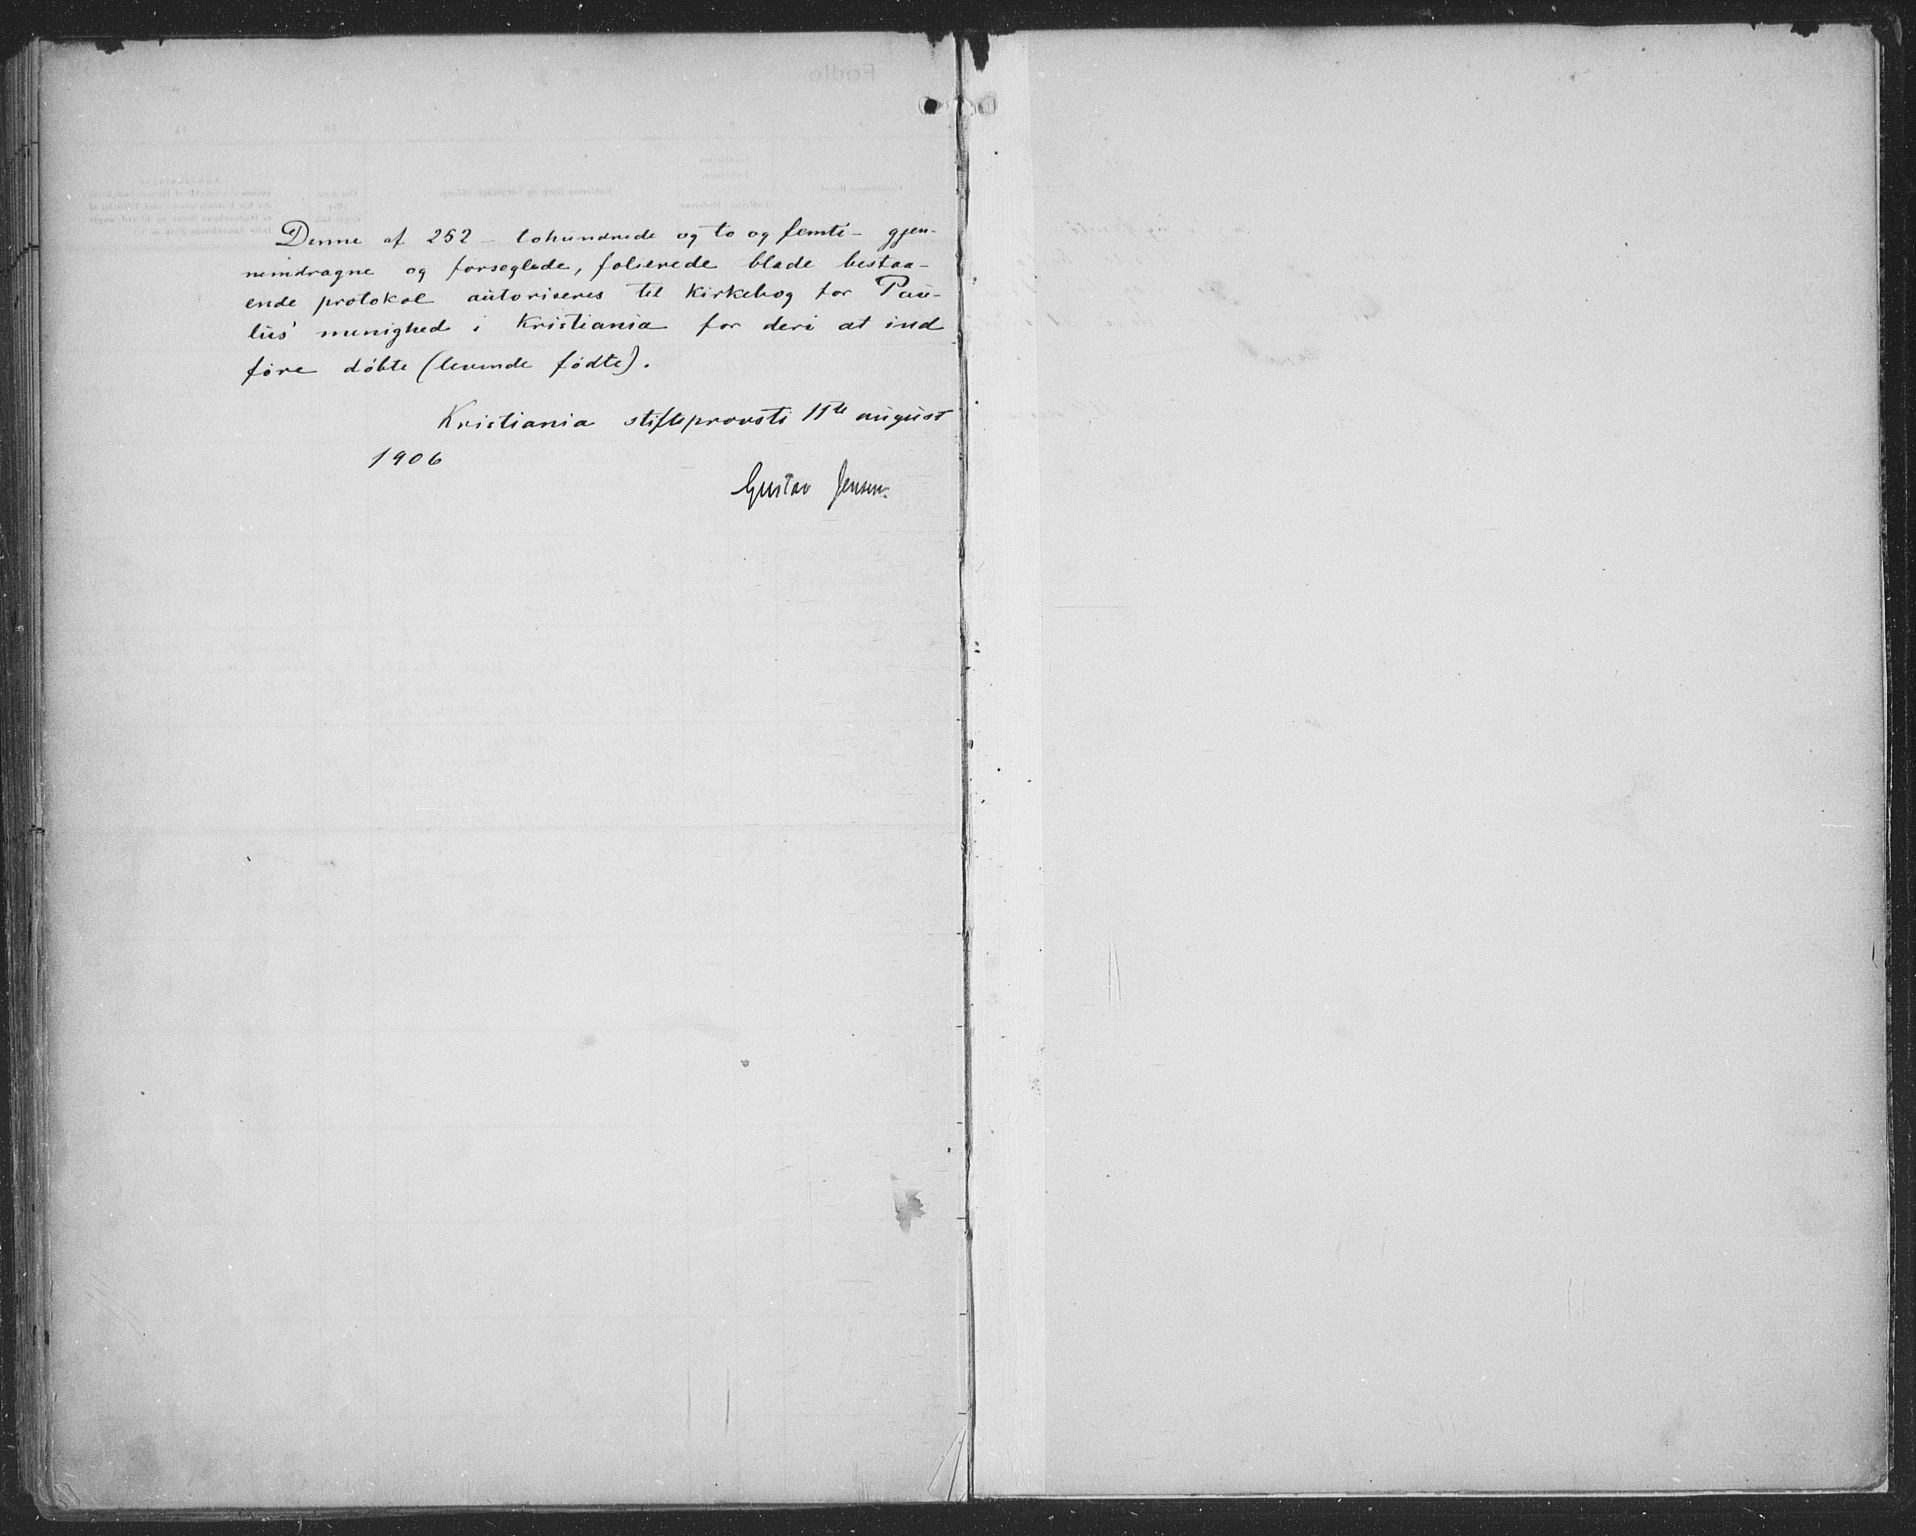 Denne af 252 - tohundrede og to og femti - gjen-
nemdragne og forseglede, folierede blade bestaa-
ende protokol autoriseres til kirkebog for Pau-
lus' menighed i Kristiania for deri at ind
føre døbte (levende fødte).
Kristiania stiftsprovsti 11te august
1906
Gustav Jensen.